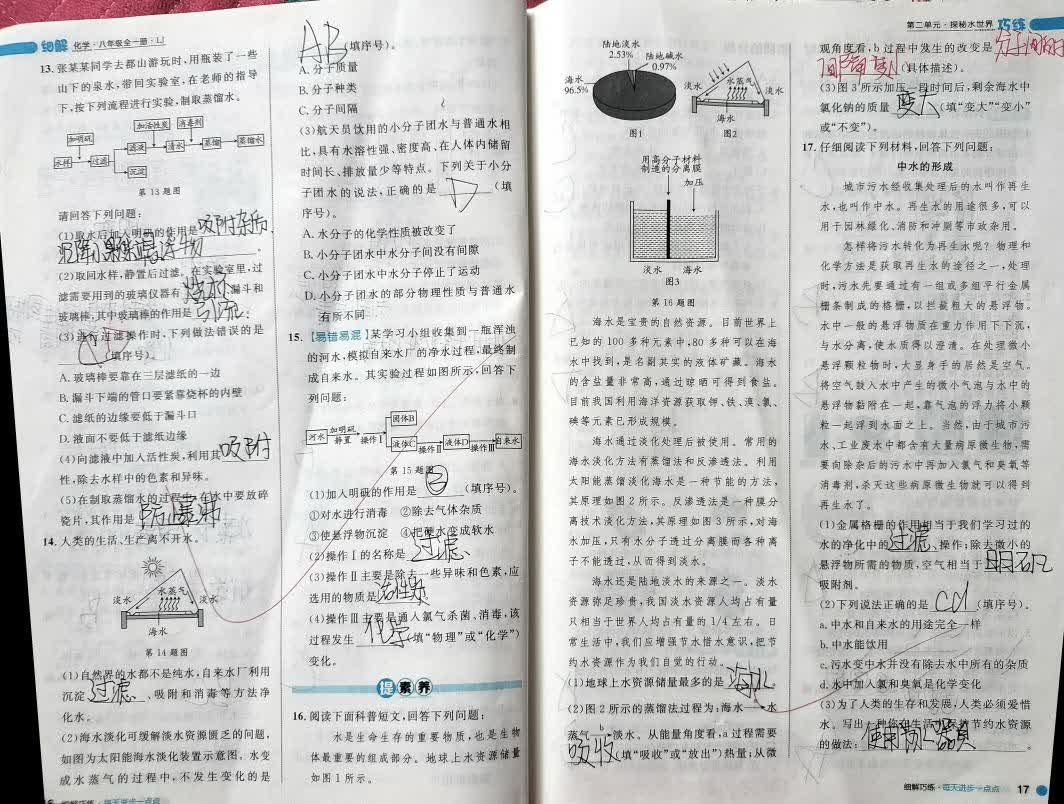 细解 化学·八年级全一册·LJ
13. 张某某同学去都山游玩时,用瓶装了一些
山下的泉水,带回实验室,在老师的指导
下,按下列流程进行实验,制取蒸馏水。
加明矾 加活性炭 消毒剂
水样 过滤 滤液 清水 蒸馏 蒸馏水
沉淀
第 13 题图
请回答下列问题:
(1)取水后加入明矾的作用是 吸附杂质,
沉降小颗粒悬浮物。
(2)取回水样,静置后过滤。在实验室里,过
滤需要用到的玻璃仪器有 烧杯 漏斗和
玻璃棒,其中玻璃棒的作用是 引流.
(3)进行过滤操作时,下列做法错误的是
(填序号)。
A. 玻璃棒要靠在三层滤纸的一边
B. 漏斗下端的管口要紧靠烧杯的内壁
C. 滤纸的边缘要低于漏斗口
D. 液面不要低于滤纸边缘
(4)向滤液中加入活性炭,利用其 吸附
性,除去水样中的色素和异味。
(5)在制取蒸馏水的过程中,在水中要放碎
瓷片,其作用是 防暴沸
14. 人类的生活、生产离不开水。
水蒸气
淡水 淡水
海水
第 14 题图
(1)自然界的水都不是纯水,自来水厂利用
沉淀、过滤、吸附和消毒等方法净
化水。
(2)海水淡化可缓解淡水资源匮乏的问题,
如图为太阳能海水淡化装置示意图。水变
成水蒸气的过程中,不发生变化的是
16 细解巧练·每天进步一点点
AB (填序号)。
A. 分子质量
B. 分子种类
C. 分子间隔
(3)航天员饮用的小分子团水与普通水相
比,具有水溶性强、密度高、在人体内储留
时间长、排放量少等特点。下列关于小分
子团水的说法,正确的是 D (填
序号)。
A. 水分子的化学性质被改变了
B. 小分子团水中水分子间没有间隙
C. 小分子团水中水分子停止了运动
D. 小分子团水的部分物理性质与普通水
有所不同
15. 【易错易混】某学习小组收集到一瓶浑浊
的河水,模拟自来水厂的净水过程,最终制
成自来水。其实验过程如图所示,回答下
列问题:
河水 加明矾 静置 操作Ⅰ 固体B
液体C 操作Ⅱ 液体D 操作Ⅲ 自来水
第 15 题图
(1)加入明矾的作用是 ③ (填序号)。
①对水进行消毒 ②除去气体杂质
③使悬浮物沉淀 ④把硬水变成软水
(2)操作Ⅰ的名称是 过滤
(3)操作Ⅱ主要是除去一些异味和色素,应
选用的物质是 活性炭
(4)操作Ⅲ主要是通入氯气杀菌、消毒,该
过程发生 化学 (填“物理”或“化学”)
变化。
提素养
16. 阅读下面科普短文,回答下列问题:
水是生命存在的重要物质,也是生物
体最重要的组成部分。地球上水资源储量
如图 1 所示。
第二单元·探秘水世界 巧练
陆地淡水 2.53% 陆地碱水 0.97%
海水 96.5%
图1
水蒸气
淡水 淡水
海水
图2
用高分子材料
制造的分离膜
加压
淡水 海水
图3
第 16 题图
海水是宝贵的自然资源。目前世界上
已知的 100 多种元素中,80 多种可以在海
水中找到,是名副其实的液体矿藏。海水
的含盐量非常高,通过晾晒可得到食盐。
目前我国利用海洋资源获取钾、铁、溴、氯、
碘等元素已形成规模。
海水通过淡化处理后被使用。常用的
海水淡化方法有蒸馏法和反渗透法。利用
太阳能蒸馏淡化海水是一种节能的方法,
其原理如图 2 所示。反渗透法是一种膜分
离技术淡化方法,其原理如图 3 所示,对海
水加压,只有水分子透过分离膜而各种离
子不能透过,从而得到淡水。
海水还是陆地淡水的来源之一。淡水
资源弥足珍贵,我国淡水资源人均占有量
只相当于世界人均占有量的 1/4 左右。日
常生活中,我们应增强节水惜水意识,把节
约水资源作为我们自觉的行动。
(1)地球上水资源储量最多的是 海水。
(2)图 2 所示的蒸馏法过程为:海水 水
蒸气 淡水。从能量角度看,a 过程需要
吸收 (填“吸收”或“放出”)热量;从微
观角度看,b 过程中发生的改变是 分子间的
间隔变小 (具体描述)。
(3)图 3 所示加压一段时间后,剩余海水中
氯化钠的质量 变大 (填“变大”“变小”
或“不变”)。
17. 仔细阅读下列材料,回答下列问题:
中水的形成
城市污水经收集处理后的水叫作再生
水,也叫作中水。再生水的用途很多,可以
用于园林绿化、消防和冲厕等市政杂用。
怎样将污水转化为再生水呢?物理和
化学方法是获取再生水的途径之一,处理
时,污水先要通过有一组或多组平行金属
栅条制成的格栅,以拦截粗大的悬浮物。
水中一般的悬浮物质在重力作用下下沉,
与水分离,使水质得以澄清。在处理微小
悬浮颗粒物时,大显身手的居然是空气。
将空气鼓入水中产生的微小气泡与水中的
悬浮物黏附在一起,靠气泡的浮力将小颗
粒一起浮到水面之上。当然,由于城市污
水、工业废水中都含有大量病原微生物,需
要向除杂后的污水中再加入氯气和臭氧等
消毒剂,杀灭这些病原微生物就可以得到
再生水了。
(1)金属格栅的作用相当于我们学习过的
水的净化中的 过滤 操作;除去微小的
悬浮物所需的物质,空气相当于 明矾
吸附剂。
(2)下列说法正确的是 cd (填序号)。
a. 中水和自来水的用途完全一样
b. 中水能饮用
c. 污水变中水并没有除去水中所有的杂质
d. 水中加入氯和臭氧是化学变化
(3)为了人类的生存和发展,人类必须爱惜
水。写出一种你在生活中保护节约水资源
的做法:
细解巧练·每天进步一点点 17